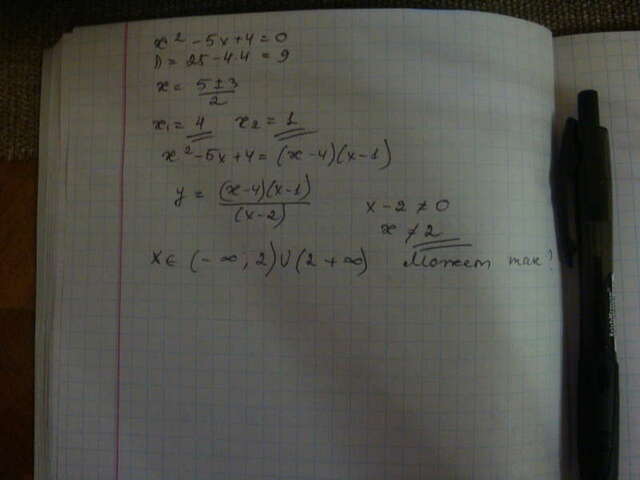 x² - 5x + 4 = 0
D = 25 - 4·4 = 9
x = (5 ± 3)/2
x₁ = 4 x₂ = 1
x² - 5x + 4 = (x - 4)(x - 1)
y = (x-4)(x-1)/(x-2)
x - 2 ≠ 0
x ≠ 2
x ∈ (-∞; 2) ∪ (2 +∞) Может так?